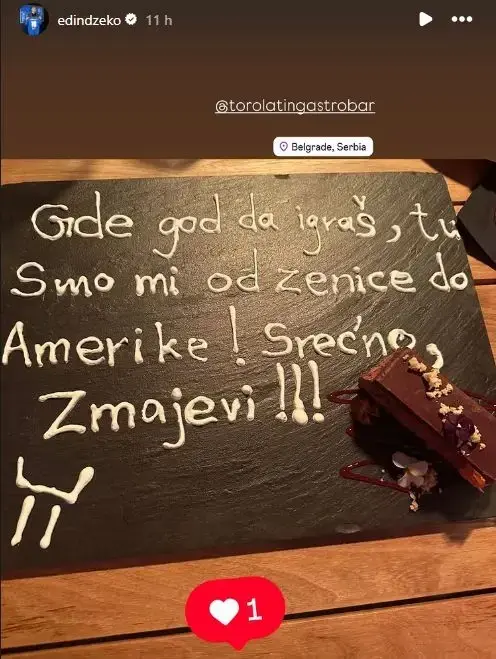 edindzeko 11 h
@torolatingastrobar
Belgrade, Serbia
Gde god da igraš, tu
Smo mi od zenice do
Amerike! Srećno,
Zmajevi!!!
1